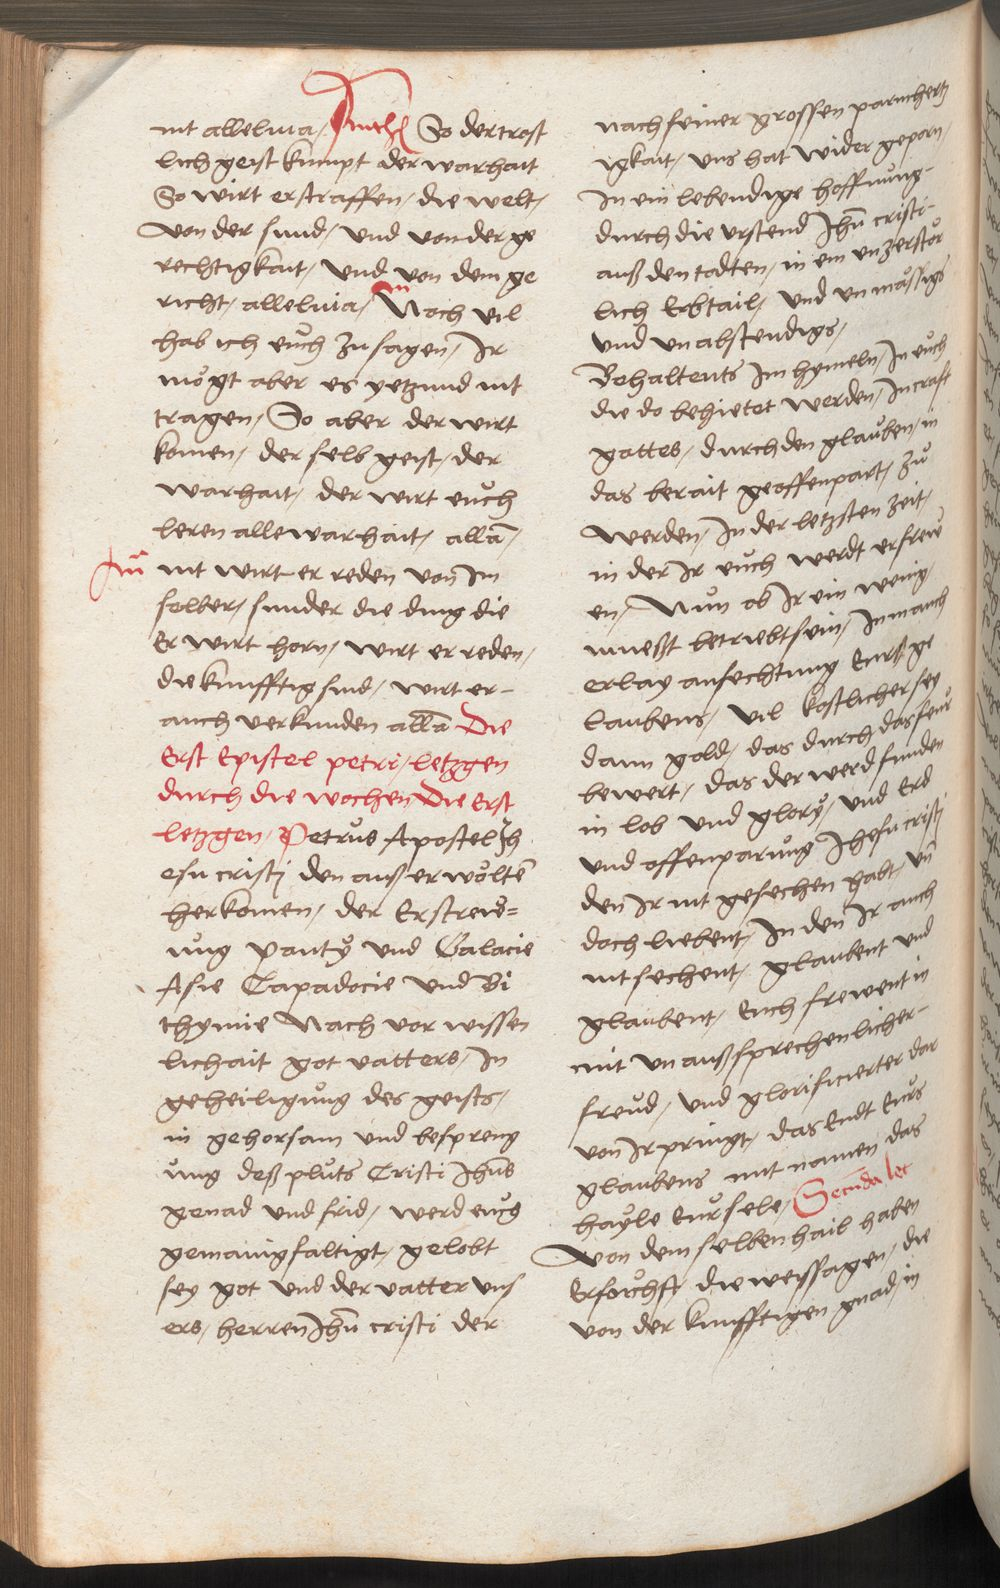 nit alleluia / Anthͤ So der trost
lich geist kumpt der warhait
So wirt er straffen / die welt /
von der sund / und von der ge
rechtigkait / und von dem ge
richt / alleluia / Noch vil
hab ich euch zu sagen / Ir
mögt aber es yetzund nit
tragen / So aber der wirt
komen / der selb geist / der
warhait / der wirt euch
leren alle warhait / allā /
nit wirt er reden von Im
selber / sunder die ding die
Er wirt horn / wirt er reden /
die kunfftig sind / wirt er-
auch verkunden allā Die
Erst Epistel petri / letzgen
durch die wochen Die Erst
letzgen / Petrus Apostel Jh
esu cristi den auß erwölte͂
herkomen / der Erstrew=
ung ponty und Galacie
Asie Capadocie und Bi
thymie Nach vor wissen
lichait got vatters / In
geheiligung des geists /
in gehorsam und bespreng
ung deß pluts Cristi Jhūs
genad und frid / werd eucg
gemanigfaltigt / gelobt
sey got und der vatter uns
ers / herren Jhū cristi der
nach seiner grossen parmhertz
igkait / uns hat wider geporn /
In ein lebendige hoffnung-
durch die urstend Jhū cristi-
auß den todten / in ein unzerstör
lich Erbtail / und unmässigs
und unabstendigs /
Behaltents Im hymeln / In euch
die do behietet werden / In craft
gottes / durch den glauben / in
das berait geoffenpart / zu
werden / In der letzsten zeit /
in der Ir euch werdt erfrew
en / Nun ob Ir ein wenig
mueßt betriebt sein / In manch
erlay anfechtung Eurß ge
laubens / vil kostlicher sey
dann gold / das durch das feur
bewert / das der werd funden
in lob und glory / und Erd
und offenparung Jhesu cristi
den Ir nit gesechen habt / un̄
doch liebent / In den Ir auch
nit sechent / glaubent und
glaubent / Euch frewent in
mit unaußsprechenlicher-
freud / und glorificierter dar
von Ir pringt / das Endt Eurs
glaubens mit namen das
hayle Eur sele / Secunda lec
Von dem selben hail haben
Erforchst die weyssagen / die
von der kunfftigen gnad / in